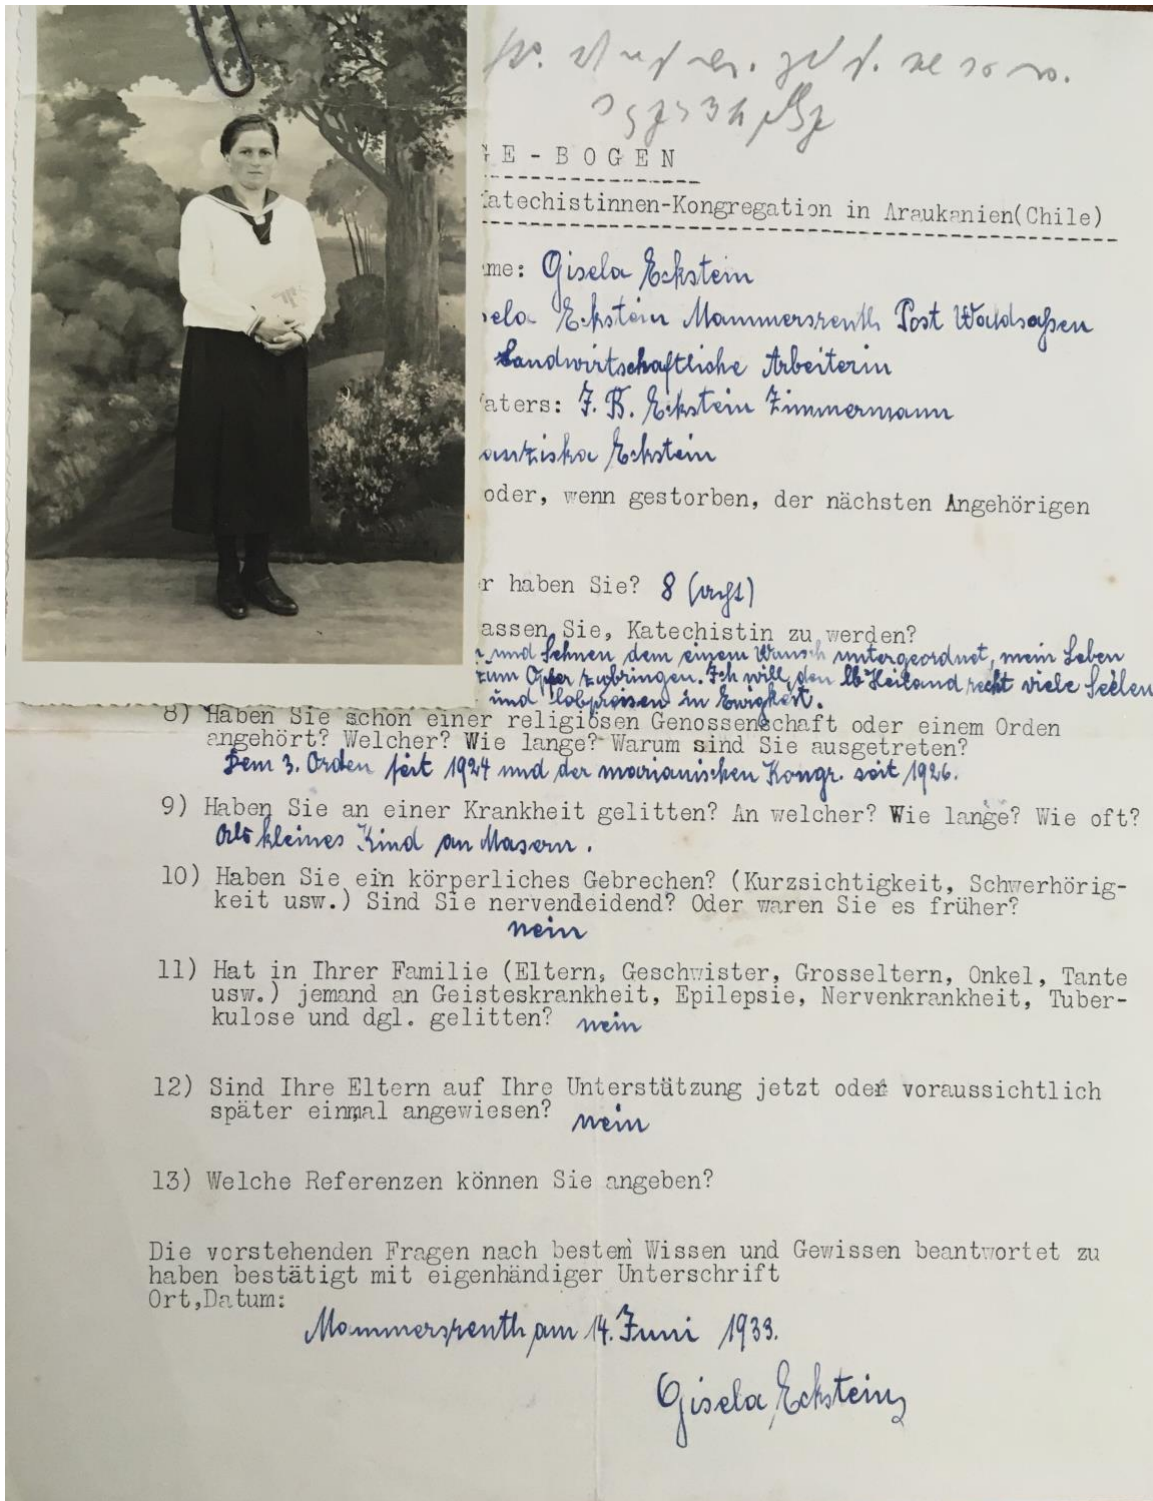 GE-BOGEN
Katechistinnen-Kongregation in Araukanien(Chile)
me: Gisela Eckstein
sela Eckstein Mammersreuth Post Waldsaßen
Landwirtschaftliche Arbeiterin
Vaters: J. B. Eckstein Zimmermann
anziska Eckstein
oder, wenn gestorben, der nächsten Angehörigen
r haben Sie? 8 (acht)
assen Sie, Katechistin zu werden?
und Sehnen dem einem Wunsch untergeordnet, mein Leben
zum Opfer zubringen. Ich will, den lb Heiland recht viele Seelen
und lobpreisen in Ewigkeit.
8) Haben Sie schon einer religiösen Genossenschaft oder einem Orden
angehört? Welcher? Wie lange? Warum sind Sie ausgetreten?
Dem 3. Orden seit 1924 und der marianischen Kongr. seit 1926.
9) Haben Sie an einer Krankheit gelitten? An welcher? Wie lange? Wie oft?
Als kleines Kind an Masern.
10) Haben Sie ein körperliches Gebrechen? (Kurzsichtigkeit, Schwerhörig-
keit usw.) Sind Sie nervendeidend? Oder waren Sie es früher?
nein
11) Hat in Ihrer Familie (Eltern, Geschwister, Grosseltern, Onkel, Tante
usw.) jemand an Geisteskrankheit, Epilepsie, Nervenkrankheit, Tuber-
kulose und dgl. gelitten? nein
12) Sind Ihre Eltern auf Ihre Unterstützung jetzt oder voraussichtlich
später einmal angewiesen? nein
13) Welche Referenzen können Sie angeben?
Die vorstehenden Fragen nach bestem Wissen und Gewissen beantwortet zu
haben bestätigt mit eigenhändiger Unterschrift
Ort,Datum:
Mammersreuth, am 14. Juni 1933.
Gisela Eckstein